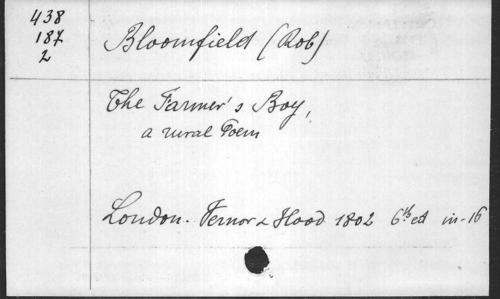 438
187
2
Bloomfield (Rob)
The Farmer's Boy,
a rural Poem
London. Vernor & Hood 1802 6th ed in-16